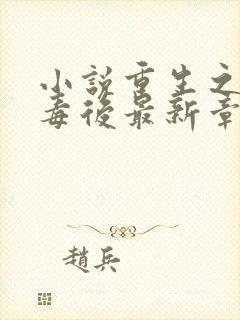 小說重生之
毒後最新章
趙兵